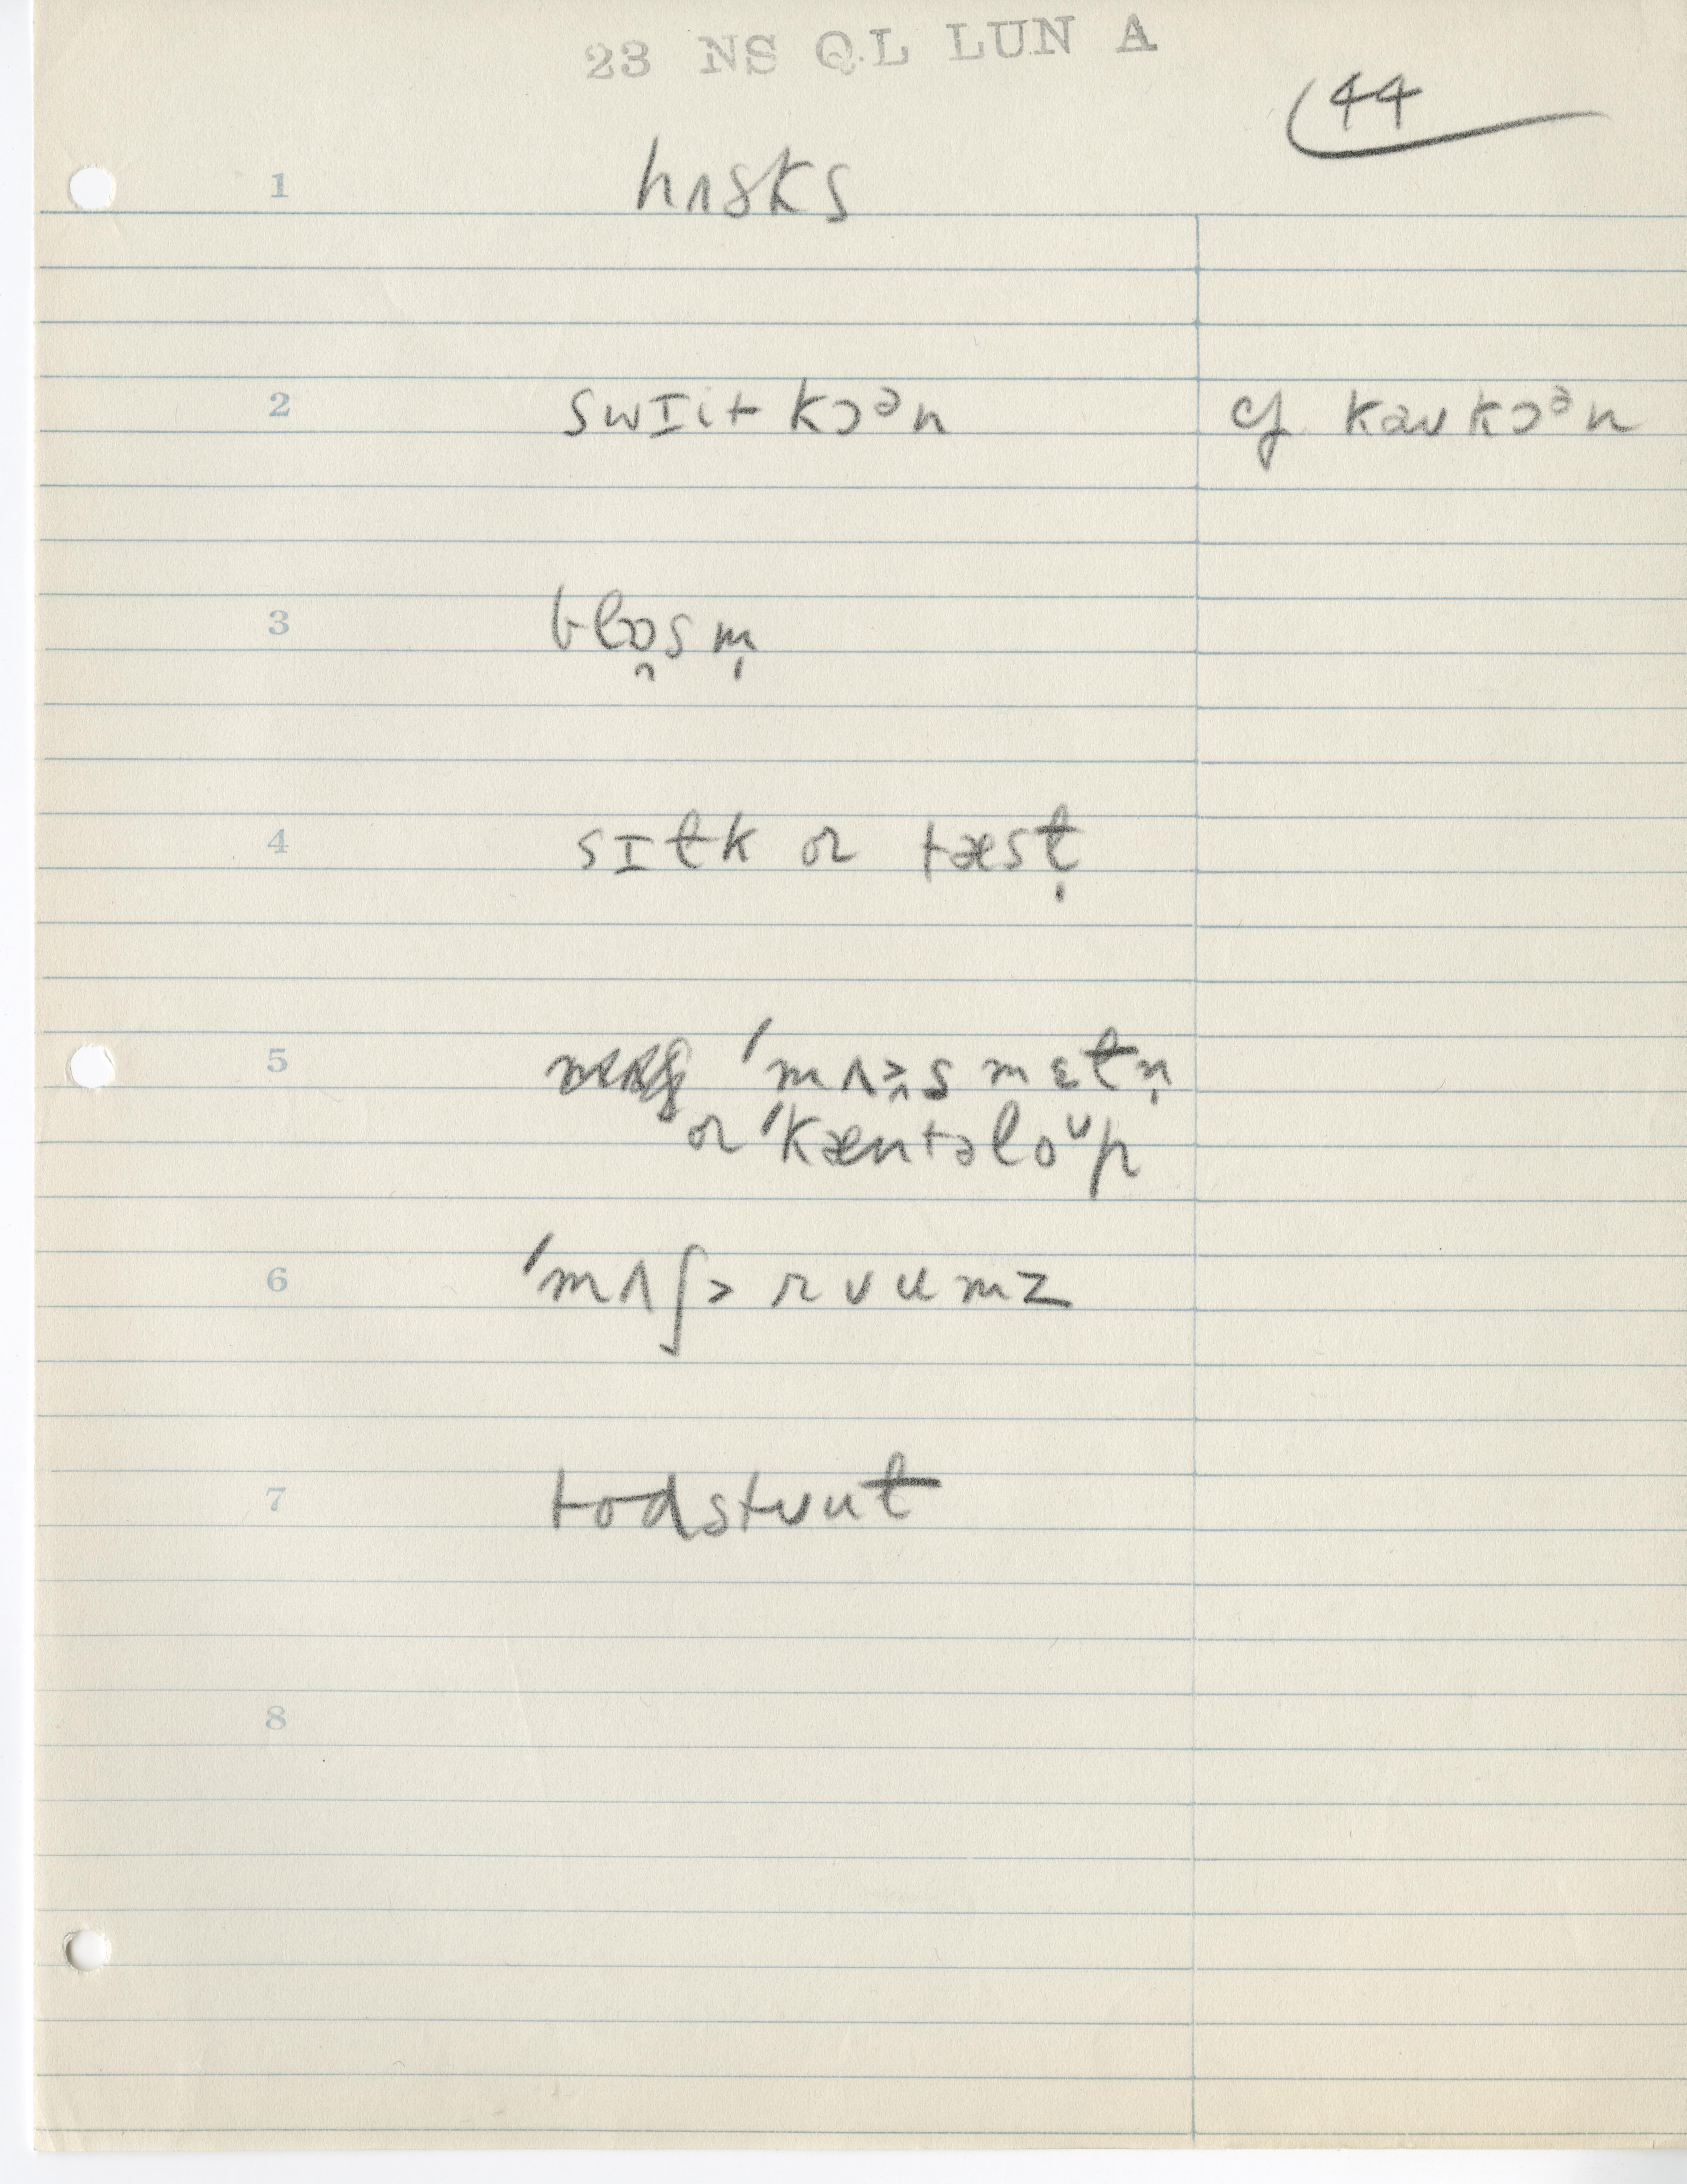 23 NS QL LUN A
44
1 hʌsks
2 swIit kɔᵊn cf. kaukɔᵊn
3 blɒ̯sm̩
4 sɪɫk or tæsɫ̩
5 ˈmʌ>̭smɛɫn̩
or ˈkæntəloᵘp
6 ˈmʌʃ>rʊumz
7 todstʊuɫ
8